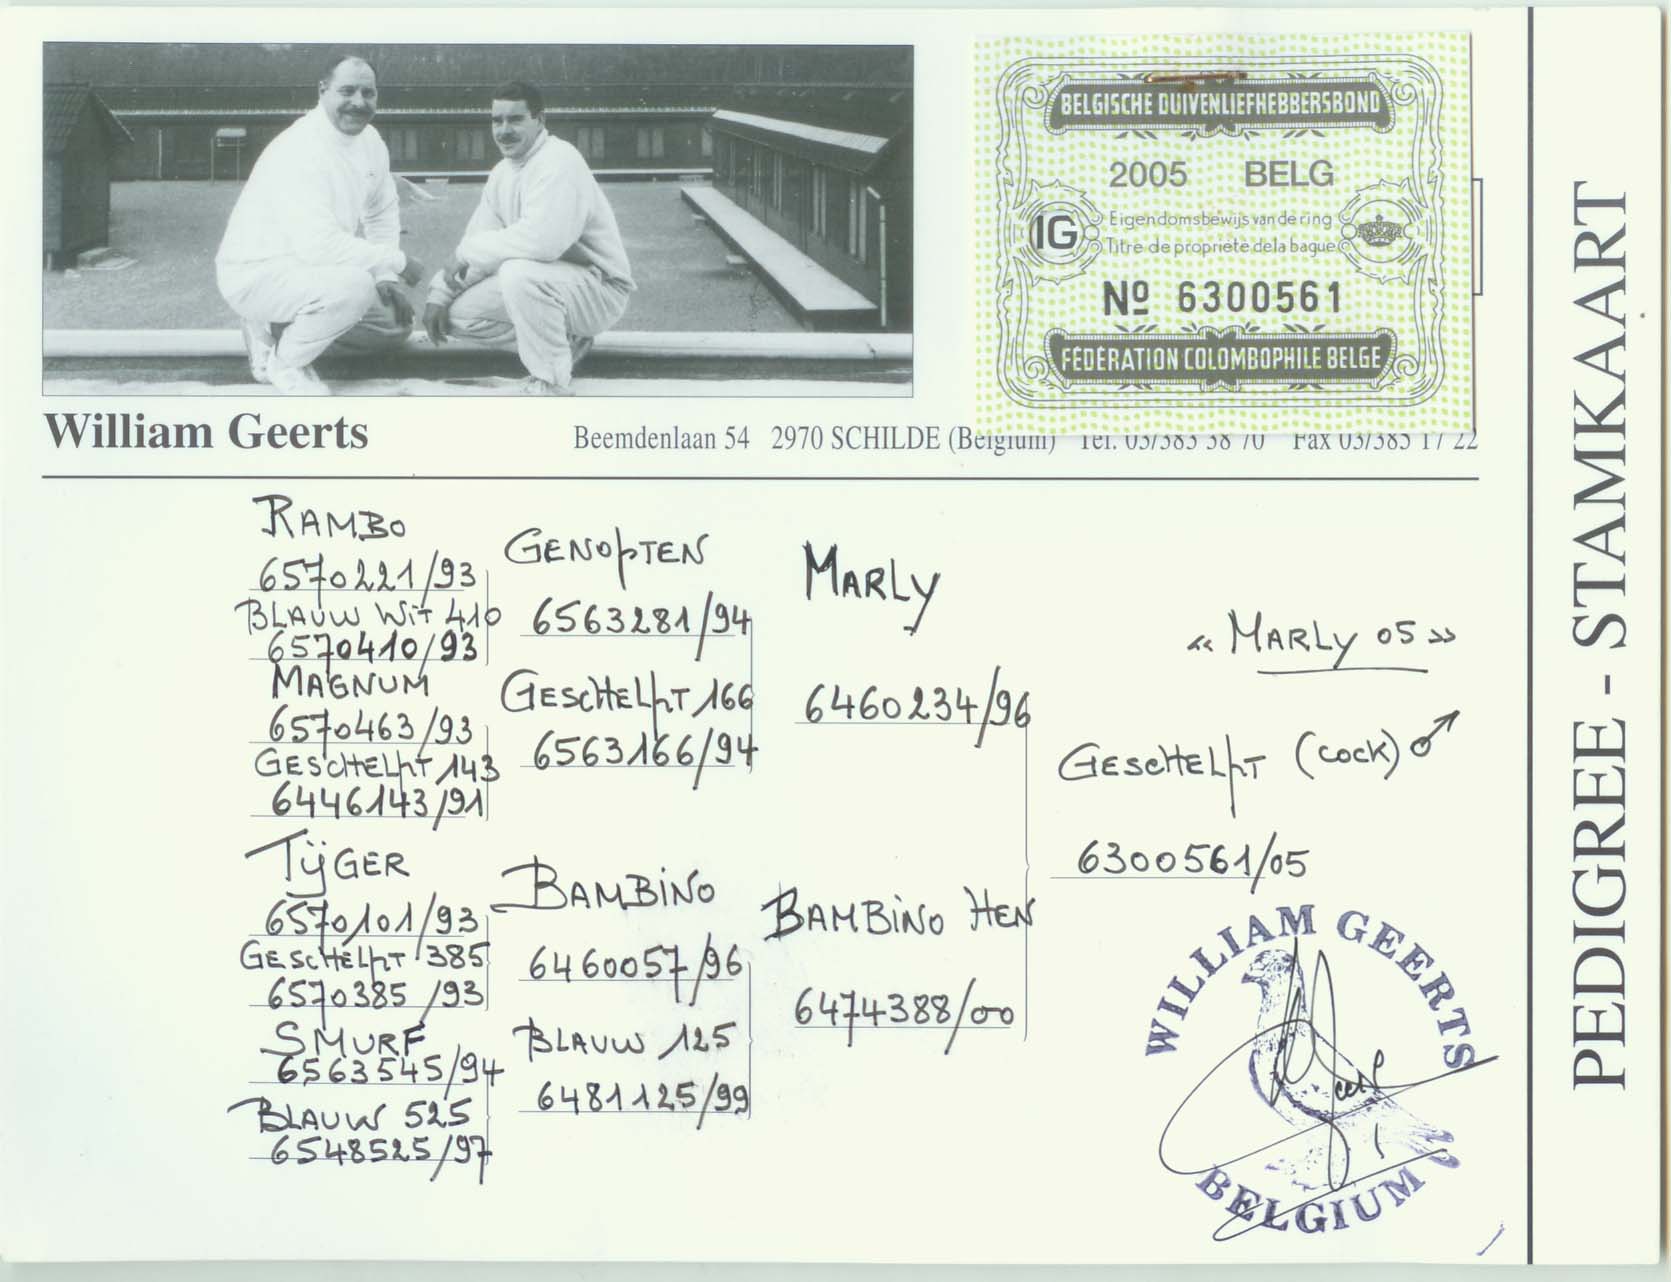 BELGISCHE DUIVENLIEFHEBBERSBOND
2005 BELG
IG
Eigendomsbewijs van de ring
Titre de propriété de la bague
Nº 6300561
FÉDÉRATION COLOMBOPHILE BELGE
William Geerts
Beemdenlaan 54 2970 SCHILDE (Belgium) Tel. 03/383 38 70 Fax 03/385 17 22
PEDIGREE - STAMKAART
RAMBO
6570221/93
BLAUW WIT 410
6570410/93
MAGNUM
6570463/93
GESCHELPT 143
6446143/91
TIJGER
6570101/93
GESCHELPT 385
6570385/93
SMURF
6563545/94
BLAUW 525
6548525/97
GENOPTEN
6563281/94
GESCHELPT 166
6563166/94
BAMBINO
6460057/96
BLAUW 125
6481125/99
MARLY
6460234/96
BAMBINO HEN
6474388/00
« MARLY 05 »
GESCHELPT (COCK) ♂
6300561/05
WILLIAM GEERTS
BELGIUM